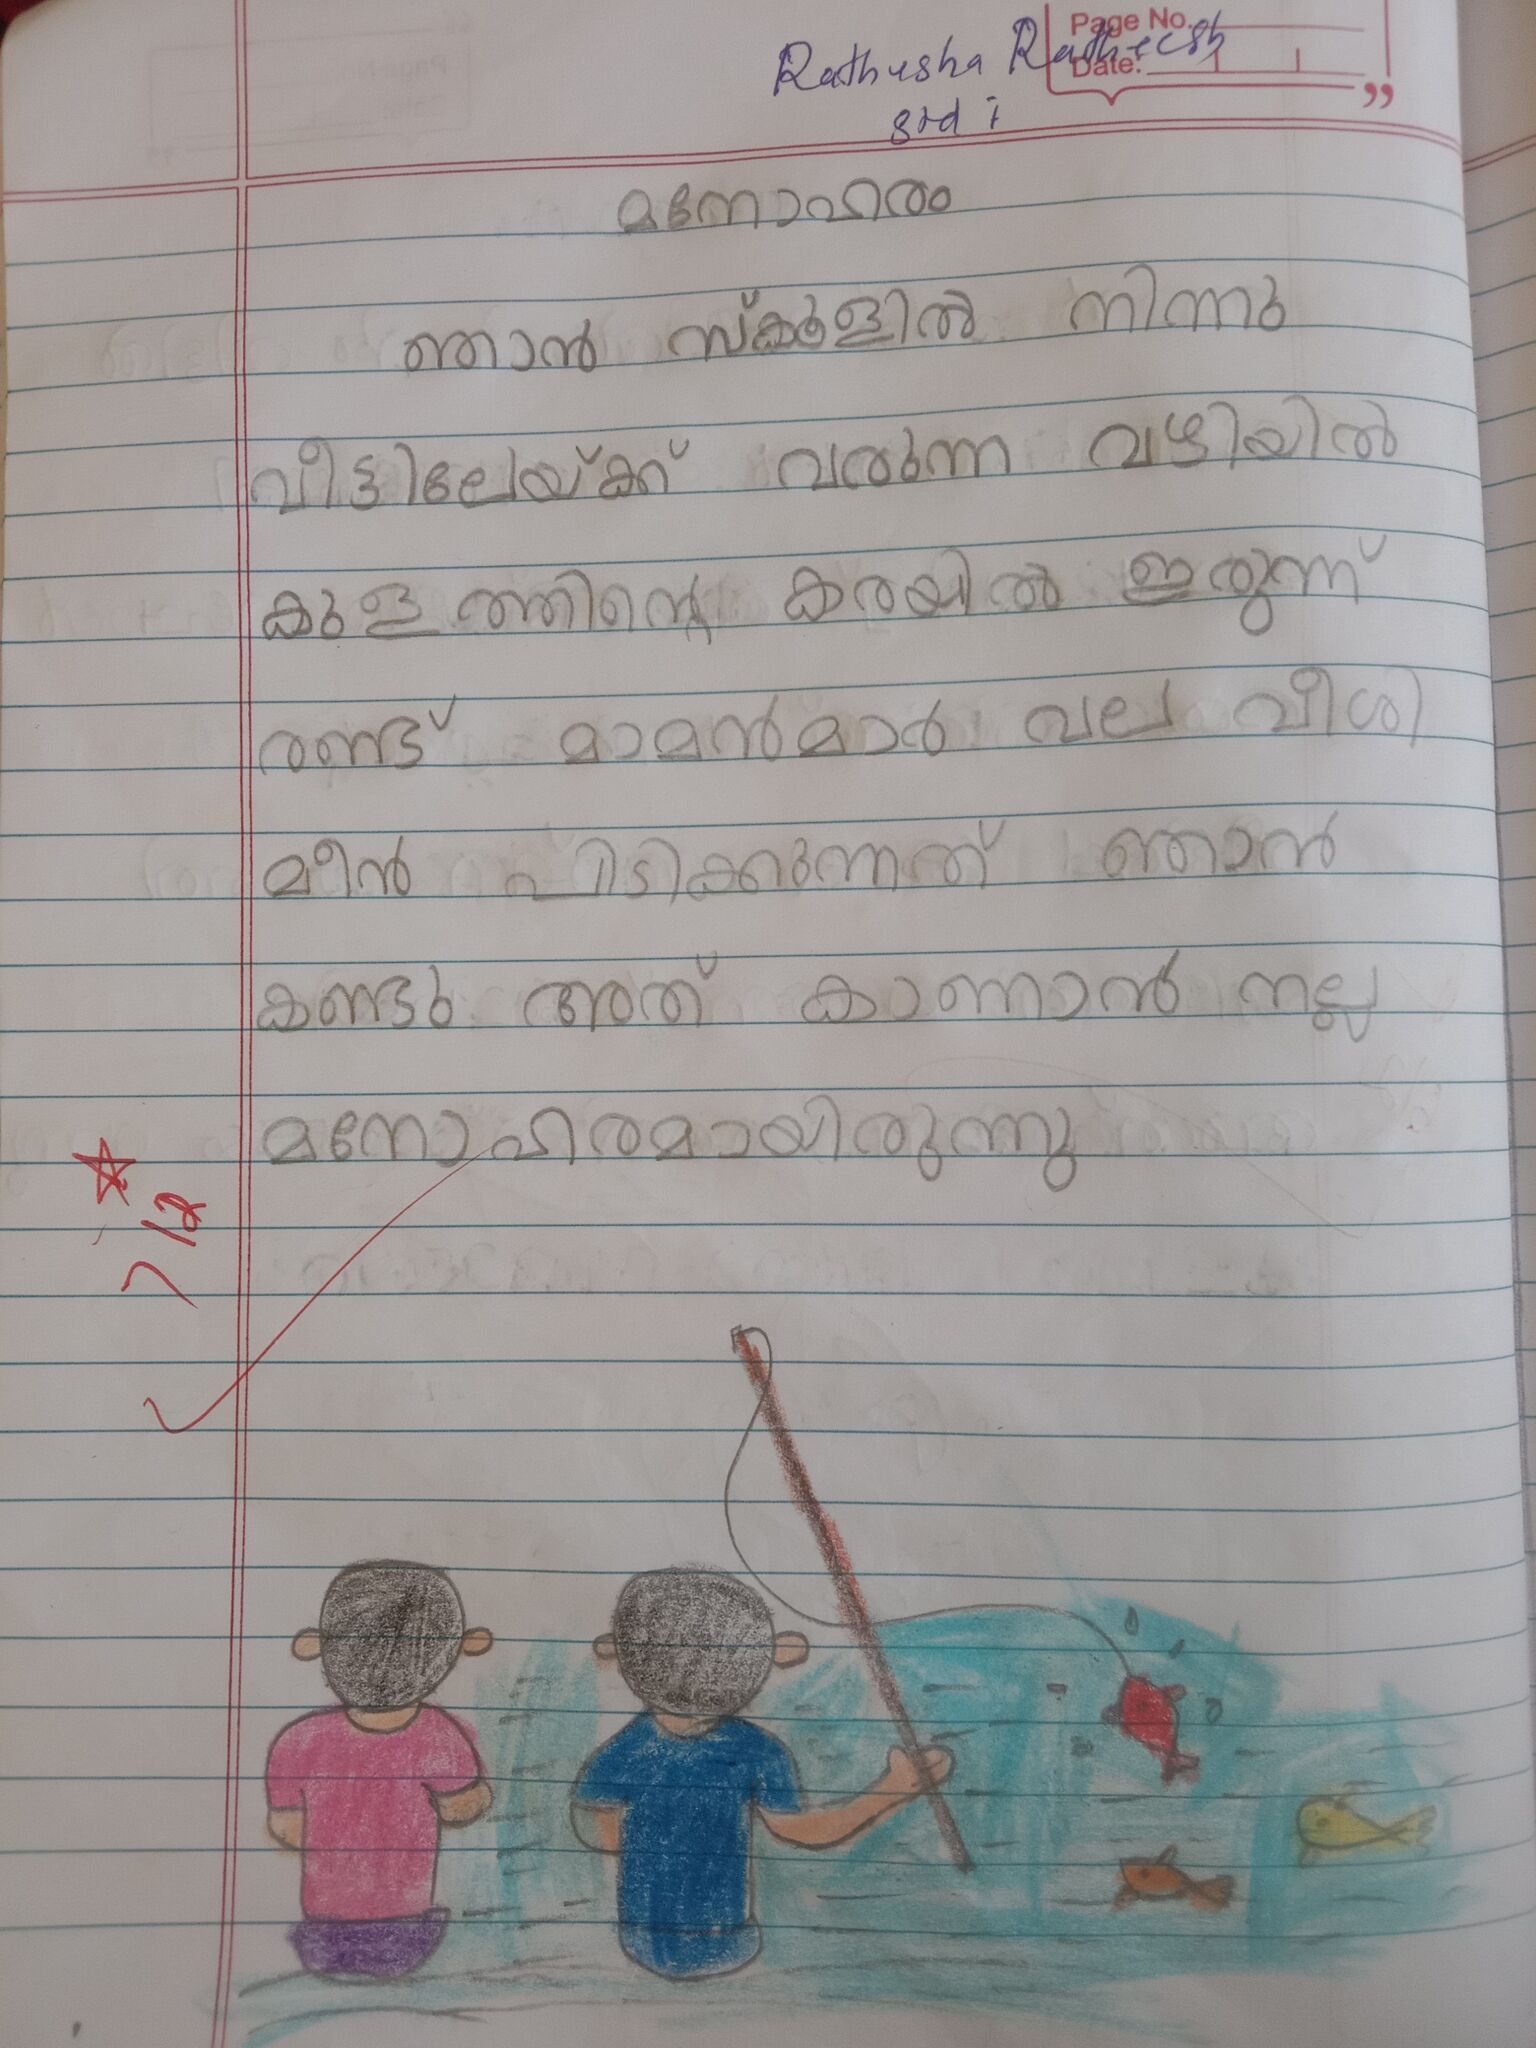 Page No.
Date:
Rathusha Ratheesh
std i
മനോഹരം
ഞാൻ സ്കൂളിൽ നിന്നു
വീട്ടിലേയ്ക്ക് വരുന്ന വഴിയിൽ
കുളത്തിന്റെ കരയിൽ ഇരുന്ന്
രണ്ട് മാമൻമാർ വല വീശി
മീൻ പിടിക്കുന്നത് ഞാൻ
കണ്ടു അത് കാണാൻ നല്ല
മനോഹരമായിരുന്നു
7/2